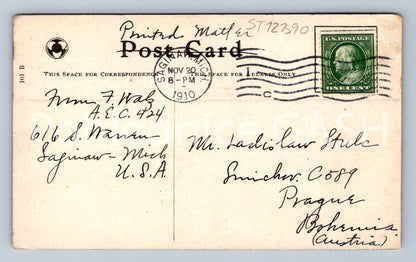 Printed Matter
ST12390
Post Card
101 B
THIS SPACE FOR CORRESPONDENCE
THIS SPACE FOR ADDRESS ONLY.
SAGINAW, MICH.
NOV 20
8-PM
1910
C
U.S. POSTAGE
ONE CENT
From F. Walz
A.E.C. 424
616 S. Warren
Saginaw - Mich
U.S.A
Mr. Ladislaw Stulc
Smichov. C089
Prague
Bohemia
(Austria)